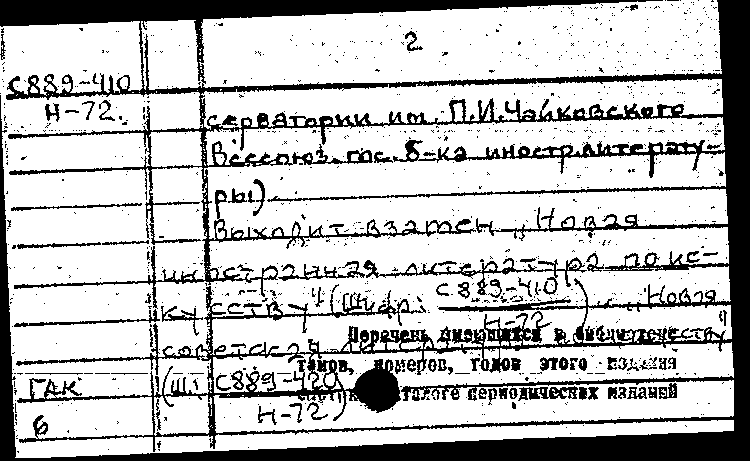 2
С889-410
Н-72.
серватории им. П.И.Чайковского
Всесоюз. гос. б-ка иностр.литерату-
ры)
Выходит взамен „Новая
иностранная литература по ис-
кусству" (Шифр: С889-410
Н-72) „Новая
советская
Перечень имеющихся в библиотеке
томов, номеров, годов этого издания
каталоге периодических изданий
(Ш.: С889-420
Н-72)
ГАК
б